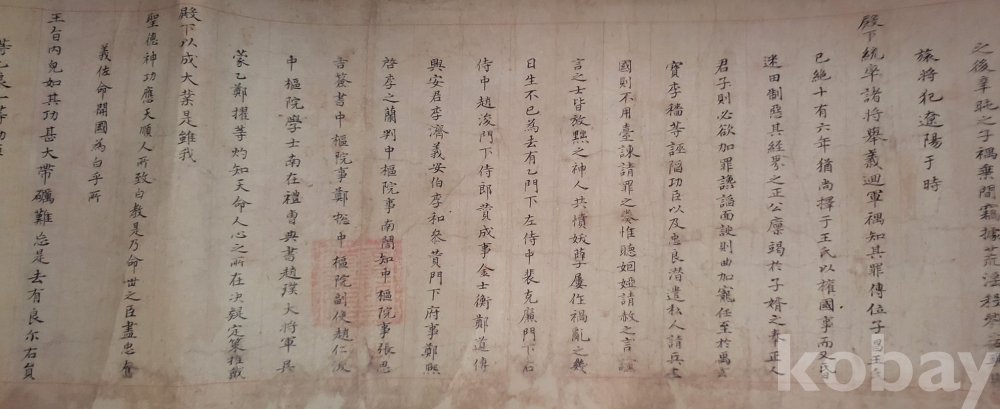 之後辜旽之子禑乘間竊據荒淫
旅將犯遼陽于時
殿下統率諸將擧義迴軍禑知其罪傳位子昌王氏
已絶十有六年猶尙擇于王氏以權國事而又昏
迷田制惡其經界之正公廩竭於子壻之奉正人
君子則必欲加罪讒諂面諛則曲加寵任至於禹玄
寶李穡等誣陷功臣以及忠良潛遣私人請兵上
國則不用臺諫請罪之榮惟聽姻婭請赦之言
言之士皆放黜之神人共憤妖孼屢作禍亂之幾
日生不已爲去有乙門下左侍中裴克廉門下右
侍中趙浚門下侍郎贊成事金士衡鄭道傳
興安君李濟義安伯李和參贊門下府事鄭熙
啓李之蘭判中樞院事南誾知中樞院事張思
吉簽書中樞院事鄭摠中樞院副使趙仁沃
中樞院學士南在禮曹典書趙璞大將軍吳
蒙乙鄭擢等灼知天命人心之所在決疑定策推戴
殿下以成大業是雖我
聖德神功應天順人所致白敎是乃命世之臣盡忠奮
義佐命開國爲白乎所
王旨內皃如其功甚大帶礪難忘是去有良尒右員
等乙良一等功臣
kobay